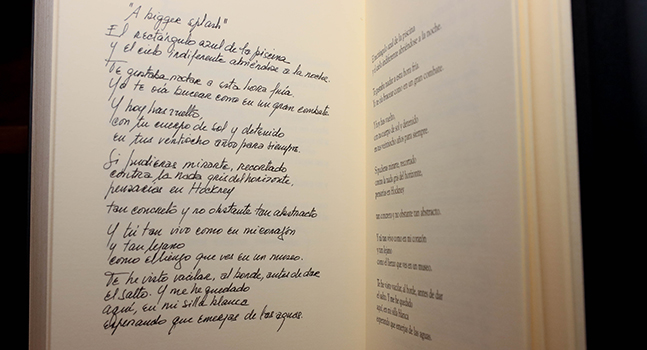 "A bigger splash"
El rectángulo azul de la piscina
y el cielo indiferente abriéndose a la noche.
Te gustaba nadar a esta hora fría.
Yo te vía bucear como en un gran combate.
Y hoy has vuelto,
con tu cuerpo de sol y detenido
en tus veintiocho años para siempre.
Si pudieras mirarte, recortado
contra la nada gris del horizonte,
pensarías en Hockney
tan concreto y no obstante tan abstracto
Y tú tan vivo como en mi corazón
y tan lejano
como el lienzo que ves en un museo.
Te he visto vacilar, al borde, antes de dar
el salto. Y me he quedado
aquí, en mi silla blanca
esperando que emerjas de las aguas.
El rectángulo azul de la piscina
y el cielo indiferente abriéndose a la noche.
Te gustaba nadar a esta hora fría.
Yo te veía bucear como en un gran combate.
Y hoy has vuelto,
con tu cuerpo de sol y detenido
en tus veintiocho años para siempre.
Si pudieras mirarte, recortado
contra la nada gris del horizonte,
pensarías en Hockney
tan concreto y no obstante tan abstracto.
Y tú tan vivo como en mi corazón
y tan lejano
como el lienzo que ves en un museo.
Te he visto vacilar, al borde, antes de dar
el salto. Y me he quedado
aquí, en mi silla blanca
esperando que emerjas de las aguas.